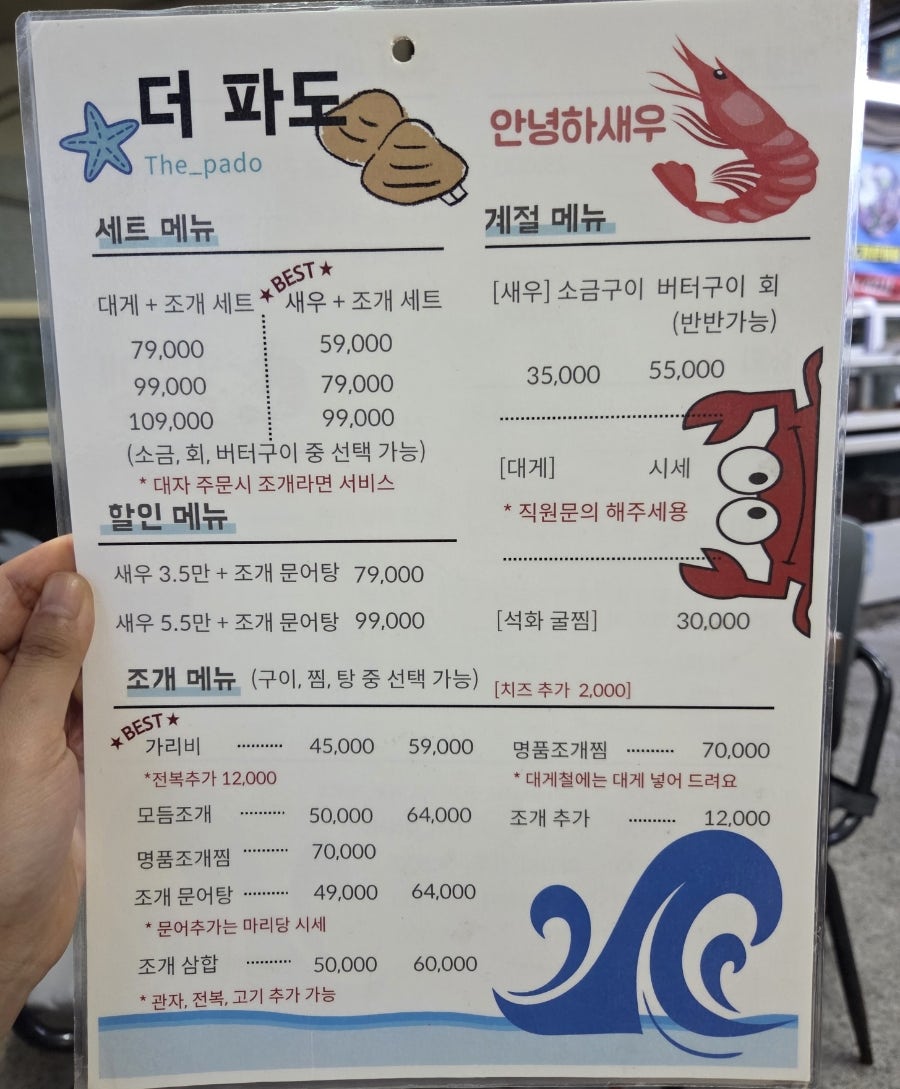 더 파도
The_pado
안녕하새우
세트 메뉴
★BEST★
대게 + 조개 세트 새우 + 조개 세트
79,000 59,000
99,000 79,000
109,000 99,000
(소금, 회, 버터구이 중 선택 가능)
* 대자 주문시 조개라면 서비스
할인 메뉴
새우 3.5만 + 조개 문어탕 79,000
새우 5.5만 + 조개 문어탕 99,000
계절 메뉴
[새우] 소금구이 버터구이 회
(반반가능)
35,000 55,000
[대게] 시세
* 직원문의 해주세용
[석화 굴찜] 30,000
조개 메뉴 (구이, 찜, 탕 중 선택 가능) [치즈 추가 2,000]
★BEST★
가리비 ·········· 45,000 59,000
*전복추가 12,000
모듬조개 ·········· 50,000 64,000
명품조개찜 ·········· 70,000
조개 문어탕 ·········· 49,000 64,000
* 문어추가는 마리당 시세
조개 삼합 ·········· 50,000 60,000
* 관자, 전복, 고기 추가 가능
명품조개찜 ·········· 70,000
* 대게철에는 대게 넣어 드려요
조개 추가 ·········· 12,000